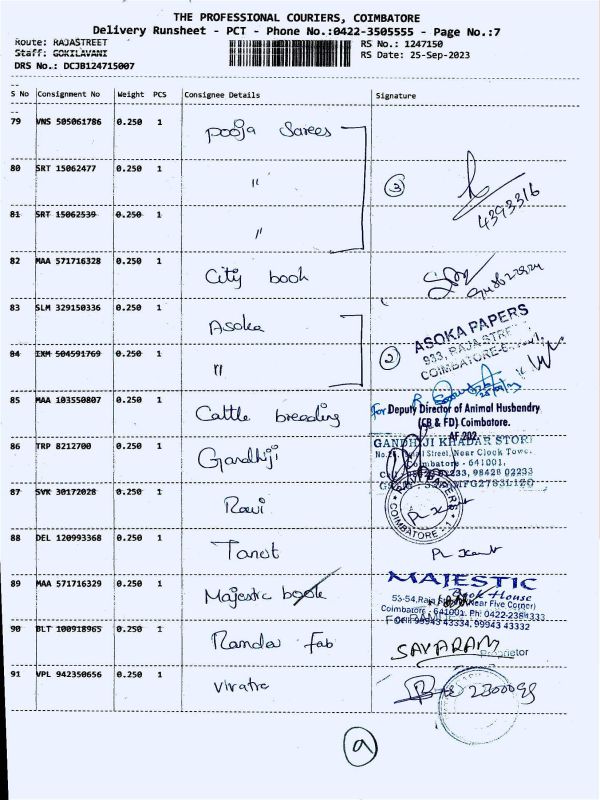 THE PROFESSIONAL COURIERS, COIMBATORE
Delivery Runsheet - PCT - Phone No.:0422-3505555 - Page No.:7
Route: RAJASTREET
RS No.: 1247150
Staff: GOKILAVANI
RS Date: 25-Sep-2023
DRS No.: DCJB124715007
S No Consignment No Weight PCS Consignee Details Signature
79 VNS 505061786 0.250 1 pooja Sarees
80 SRT 15062477 0.250 1 "
3
4393316
81 SRT 15062539 0.250 1 "
82 MAA 571716328 0.250 1 City book
83 SLM 329150336 0.250 1 Asoka
ASOKA PAPERS
933, RAJA STREET
COIMBATORE
84 IXM 504591769 0.250 1 "
2
85 MAA 103550807 0.250 1 Cattle breeding
For Deputy Director of Animal Husbendry
(CB & FD) Coimbatore.
AF 202
86 TRP 8212700 0.250 1 Gandhiji
GANDHIJI KHADAR STORE
Street, Near Clock Tower
Coimbatore - 641001,
98428 02233
87 SVK 30172028 0.250 1 Ravi
RAVI PAPERS
COIMBATORE - 1
88 DEL 120993368 0.250 1 Tanot
89 MAA 571716329 0.250 1 Majestic book
MAJESTIC
Book House
53-54, Raja Street (Near Five Corner)
Coimbatore - 641001. Ph: 0422-2384333
Cell: 99943 43334, 99943 43332
90 BLT 100918965 0.250 1 Nanda Fab
SAVARAM
Proprietor
91 VPL 942350656 0.250 1 Viratra
2300098
9